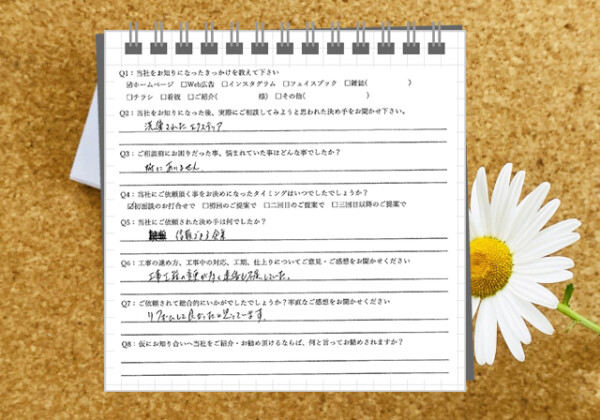 Q1：当社をお知りになったきっかけを教えて下さい
☑ホームページ □Web広告 □インスタグラム □フェイスブック □雑誌( )
□チラシ □看板 □ご紹介( 様) □その他( )
Q2：当社をお知りになった後、実際にご相談してみようと思われた決め手をお聞かせ下さい。
洗練されたエクステリア
Q3：ご相談前にお困りだった事、悩まれていた事はどんな事でしたか？
特にありません
Q4：当社にご依頼頂く事をお決めになったタイミングはいつでしたでしょうか？
☑初面談のお打合せで □初回のご提案で □二回目のご提案で □三回目以降のご提案で
Q5：当社にご依頼された決め手は何でしたか？
信頼できる企業
Q6：工事の進め方、工事中の対応、工期、仕上りについてご意見・ご感想をお聞かせください
工事工程の
Q7：ご依頼されて総合的にいかがでしたでしょうか？率直なご感想をお聞かせください
リフォームして良かったと思っています。
Q8：仮にお知り合いへ当社をご紹介・お勧め頂けるならば、何と言ってお勧めされますか？